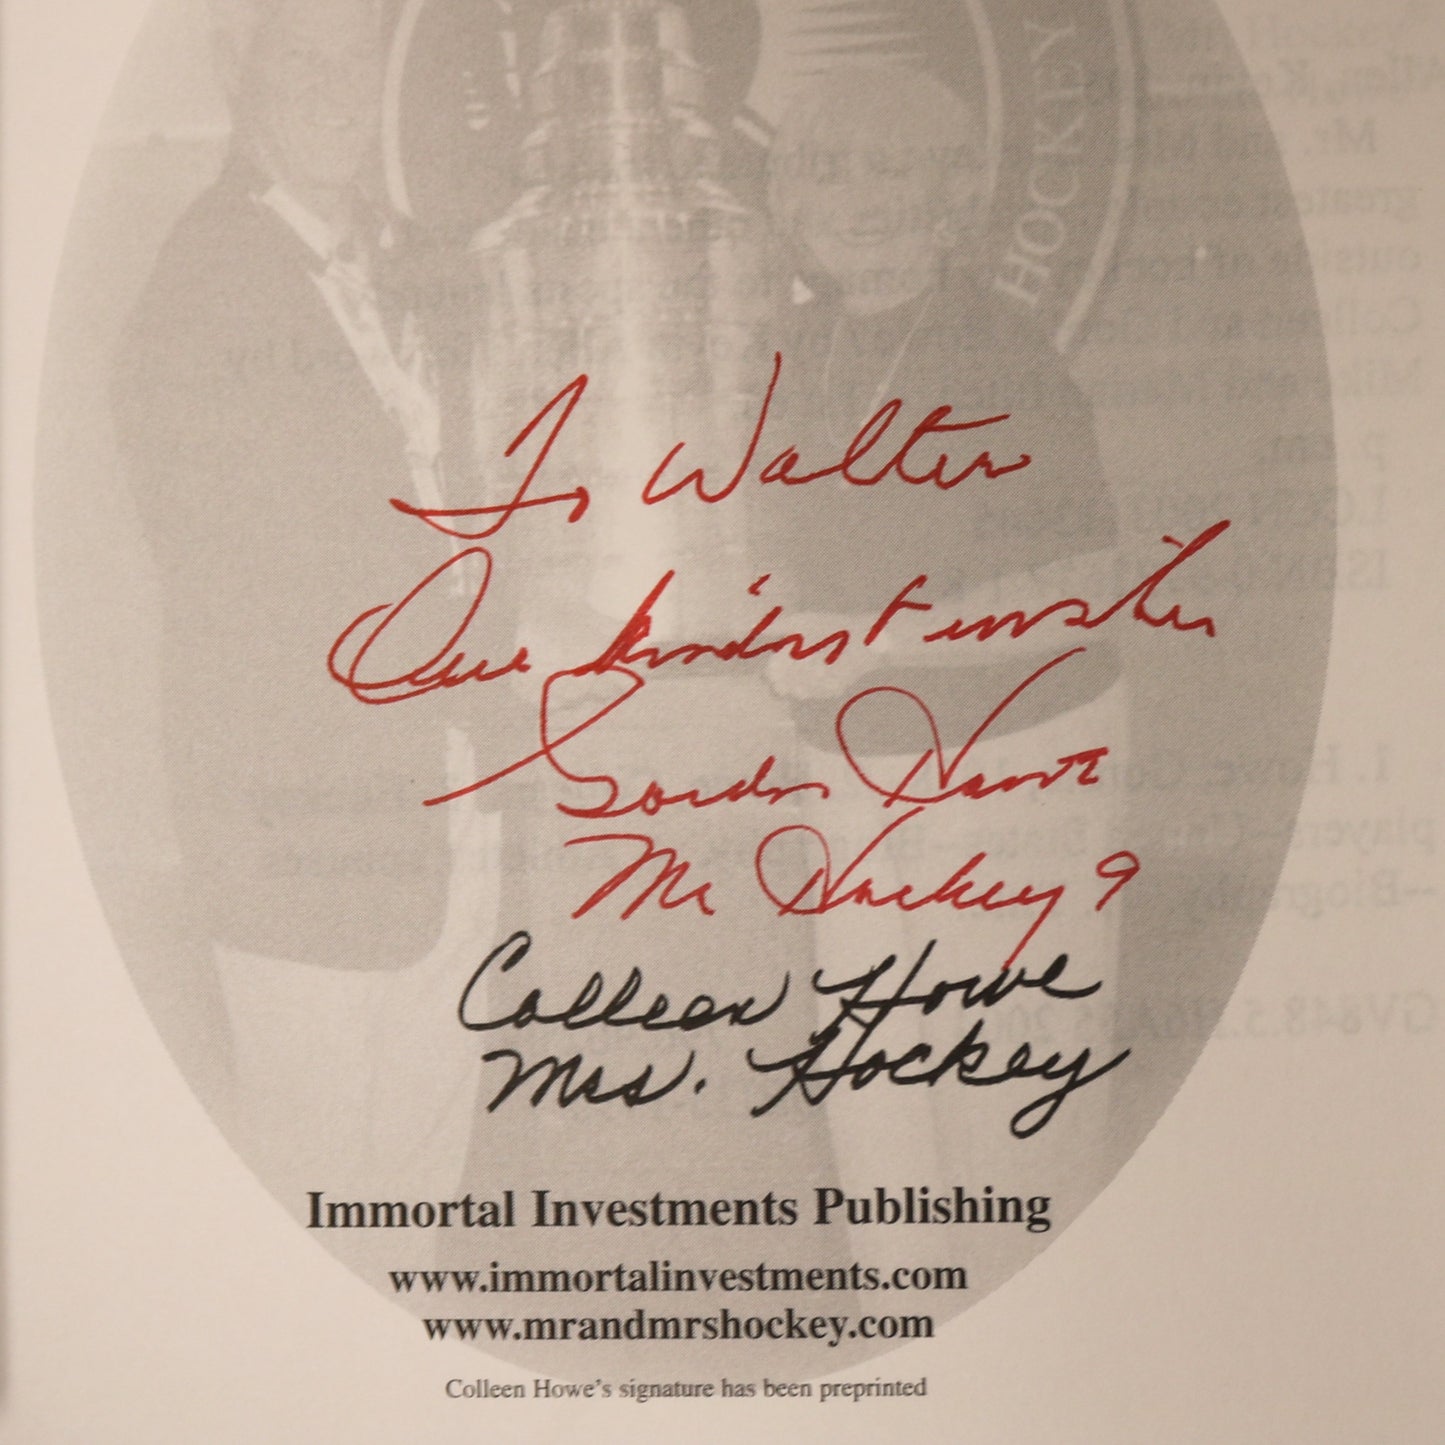 HOCKEY
To Walter
Our kindest wishes
Gordon Howe
Mr Hockey 9
Colleen Howe
Mrs. Hockey
Immortal Investments Publishing
www.immortalinvestments.com
www.mrandmrshockey.com
Colleen Howe's signature has been preprinted